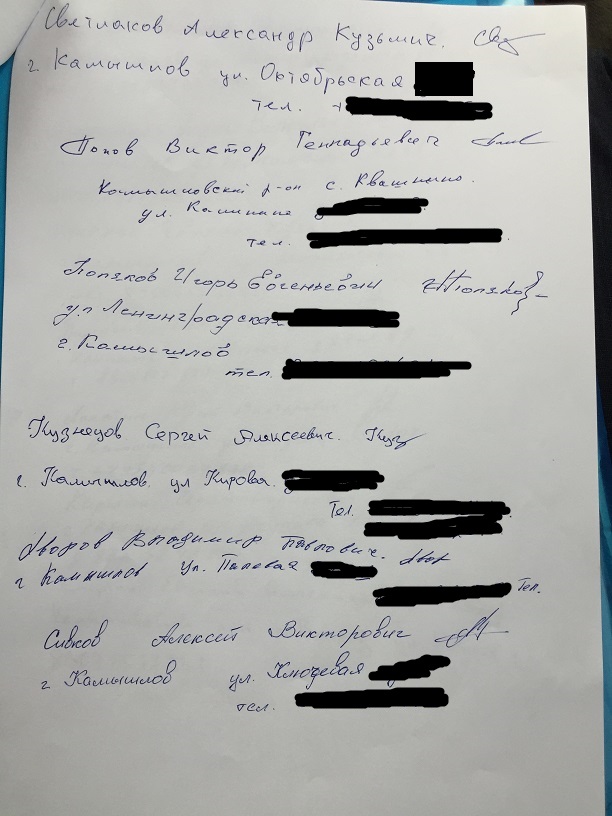 Светлаков Александр Кузьмич.
г. Камышлов ул. Октябрьская
тел. +
Попов Виктор Геннадьевич
Камышловский р-он с. Квашнино.
ул. Калинина
тел.
Поляков Игорь Евгеньевич
ул Ленинградская
г. Камышлов
тел.
Кузнецов Сергей Алексеевич. Куз
г. Камышлов, ул Кировая.
Тел.
Дворов Владимир Павлович. Двор
г Камышлов ул. Полевая
Тел.
Сивков Алексей Викторович
г Камышлов ул. Ключевая
тел.